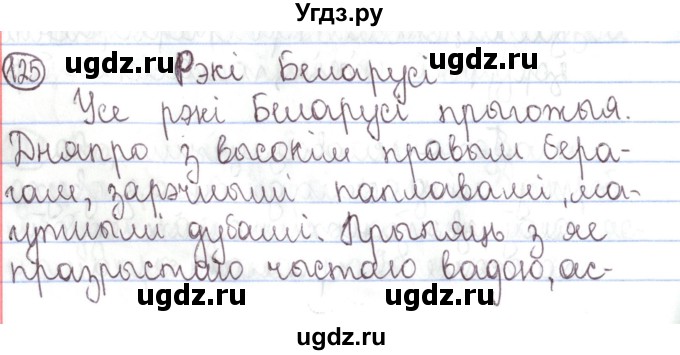 Угдз.ру
125 Рэкі Беларусі
ugdz.ru ugdz.ru
Усе рэкі Беларусі прыгожыя.
Дняпро з высокім правым бера-
гам, зарэчнымі паплавамі, ма-
гутнымі дубамі. Прыпяць з яе
празрыстаю чыстаю вадою, ас-
ugdz.ru ugdz.ru
ugdz.ru